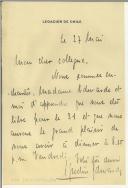 LEGACIÓN DE CHILE
le 27 Mai
Mon cher collègue,
Nous sommes en-
chantés, Madame Edwards et
moi d'apprendre que vous êtes
libre pour le 31 et que nous
aurons le grand plaisir de
vous avoir à dîner à 8.30
p.m. Vendredi.